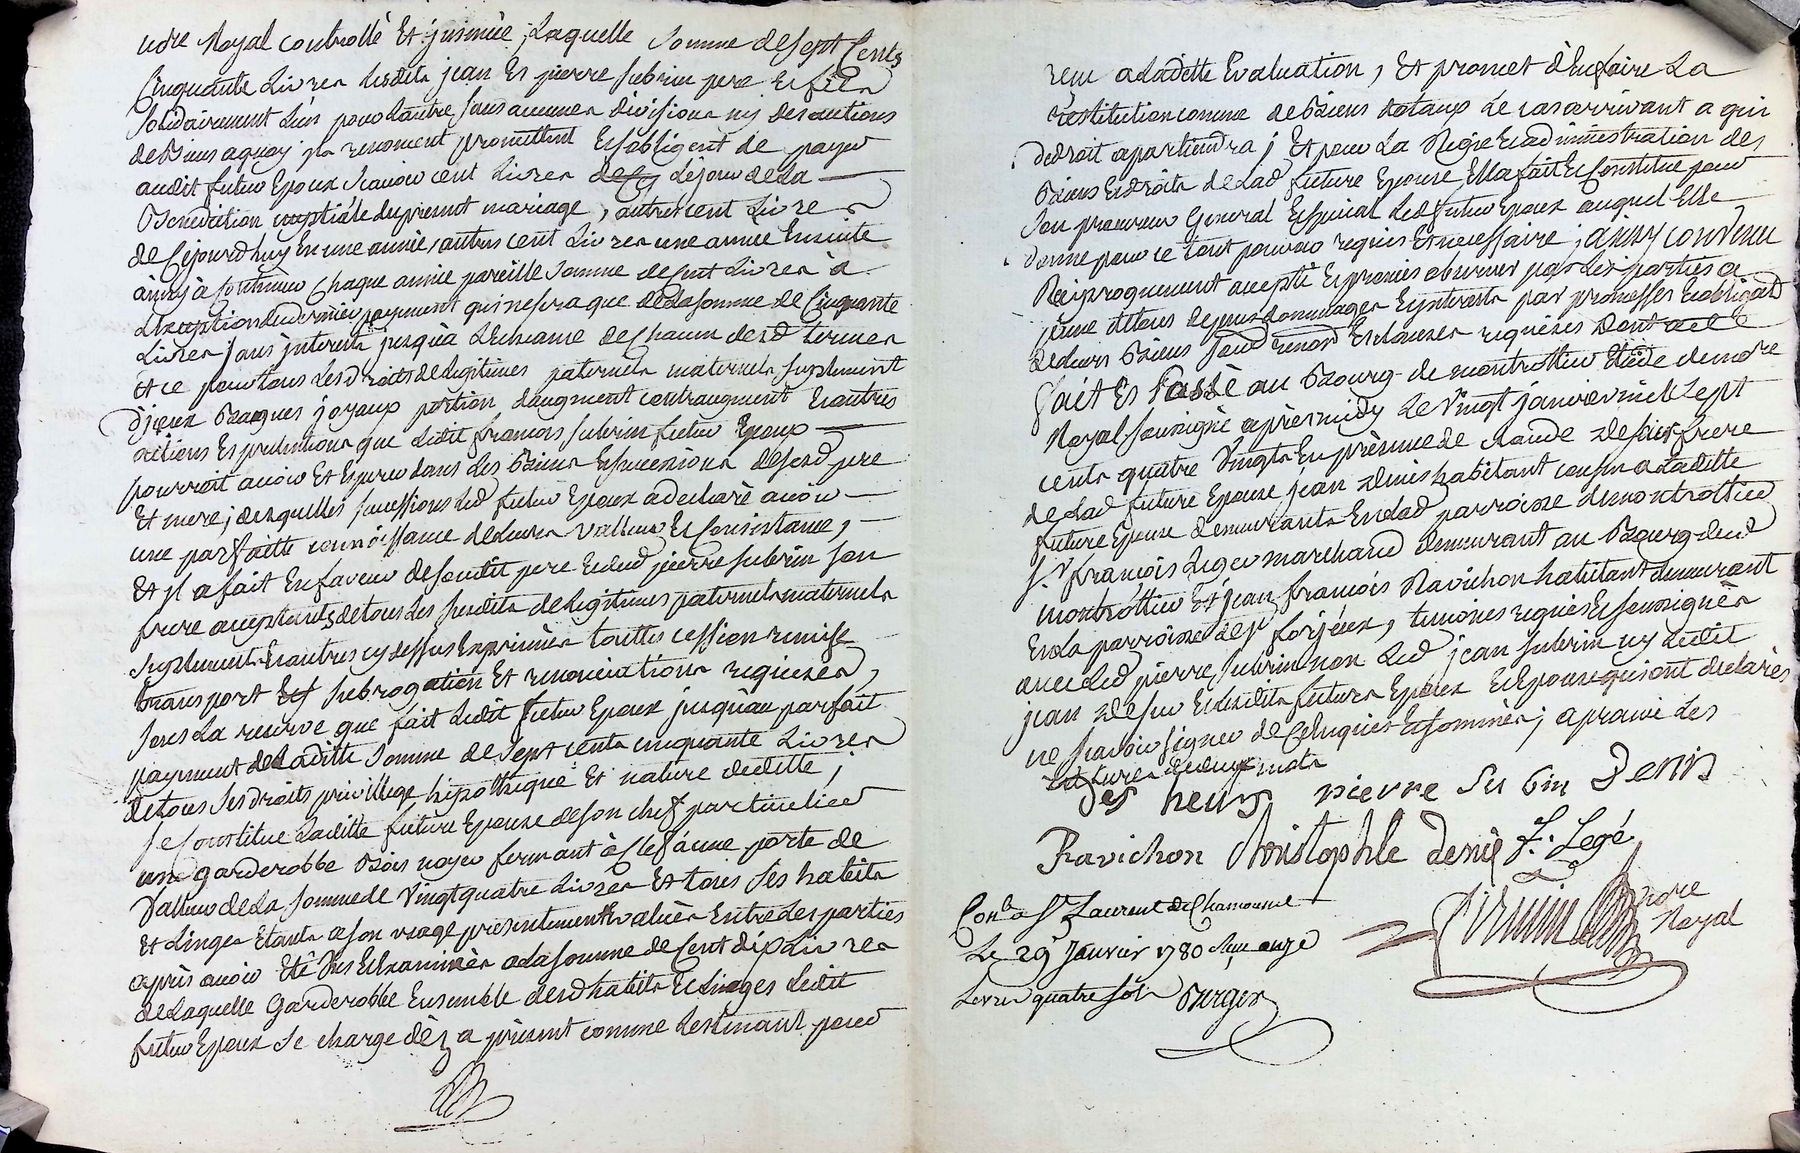 ndre Royal controllé Et jnsinüé ; Laquelle somme de sept Cents
Cinquante Livres Lesdits jean Et pierre subrin pere Et fils
solidairement L'un pour L'autre, sans aucunes divisions ny des actions
de Biens a quoy jls renoncent promettent Et sobligent de payer
audit futur Epoux scavoir cent Livres de Cy Lejour de La
Benediction nuptiale du present mariage, autres cent Livres
de Cejourdhuy En une année, autres cent Livres une année Ensuite
ainsy à Continuer chaque année pareille somme de cent Livres à
L'exception du dernier payement qui ne sera que de La somme de Cinquante
Livres sans jnterests jusqu'a L'echeance de Chacun desd termes
Et ce pour tous Les droits de Legitimes paternels maternels suplement
dJceux Bagues joyaux portion d'augment contraugment Et autres
actions Et pretentions que Ledit francois subrin futur Epoux
pourroit avoir Et Esperer dans Les Biens Et successions desesd pere
Et mere ; desquelles successions Led futur Epoux a declaré avoir
une parfaitte connoissance de Leurs valleurs Et Consistance,
Et jl a fait En faveur de sondit pere Et dud pierre subrin son
frere acceptants de tous Les susdits de Legitimes paternels maternels
suplement Et autres cy dessus Exprimés touttes cession remise
transport Et subrogation Et renonciations requises,
sous La reserve que fait Ledit futur Epoux jusqu'au parfait
payement de Laditte somme de sept cents cinquante Livres
de tous ses droits privillege hipothique Et nature dedette ;
se Constitue Laditte future Epouse de son chef particulier
une garderobbe Bois noyer fermant à Clef a une porte de
Valleur de La somme de Vingt quatre Livres Et tous ses habits
Et Linges Etants a son usage presentement Evalués Entre Les parties
après avoir Eté Vus Et Examinés a La somme de Cent dix Livres
de Laquelle Garderobbe Ensemble desd habits Et Linges Ledit
futur Epoux se charge dèz a présent comme Les tenant pour
venu a Ladette Evaluation, Et promet d'En faire La
restitution comme de Biens dotaux Le cas arrivant a qui
de droit apartiendra ; Et pour La Regie Et administration des
Biens Et droits de Lad future Epouse, Elle a fait Et Constitué pour
son procureur General Et special Led futur Epoux auquel Elle
donne pour ce tout pouvoir requis Et necessaire ; ainsy convenu
Reciproquement accepté Et promis observer par Les parties a
peine de tous depens dommages Et jnterests par promesses Et obligaons
de Leurs Biens soud renond Et clauses requises Dont acte
fait Et Passé au Bourg de montrottier Etüde dunore
Royal soussigné après midy Le Vingt janvier mil sept
cents quatre Vingts En présence de claude frere
de Lad future Epouse jean denis habitant cousin a Laditte
future Epouse demeurants En Lad parroisse demontrottier
S.r francois Leger marchand demeurant au Bourg dud
montrottier Et jean francois Ravichon habitant demeurant
En La parroisse de st forjeux, temoins requis Et soussignés
avec Led pierre subrin non Led jean subrin ny Ledit
jean Et Lesdits futurs Epoux Et Epouse qui ont declarés
ne scavoir signer de Ce Enquis Et sommés ; aprouvé Les
ratures de deux mots
pierre su bin Denis
Ravichon Christophle denis F. Legé
Conl. a St Laurent de Chamousset
Le 29 Janvier 1780 Recu onze
Livres quatre sols Burger
nore
Royal